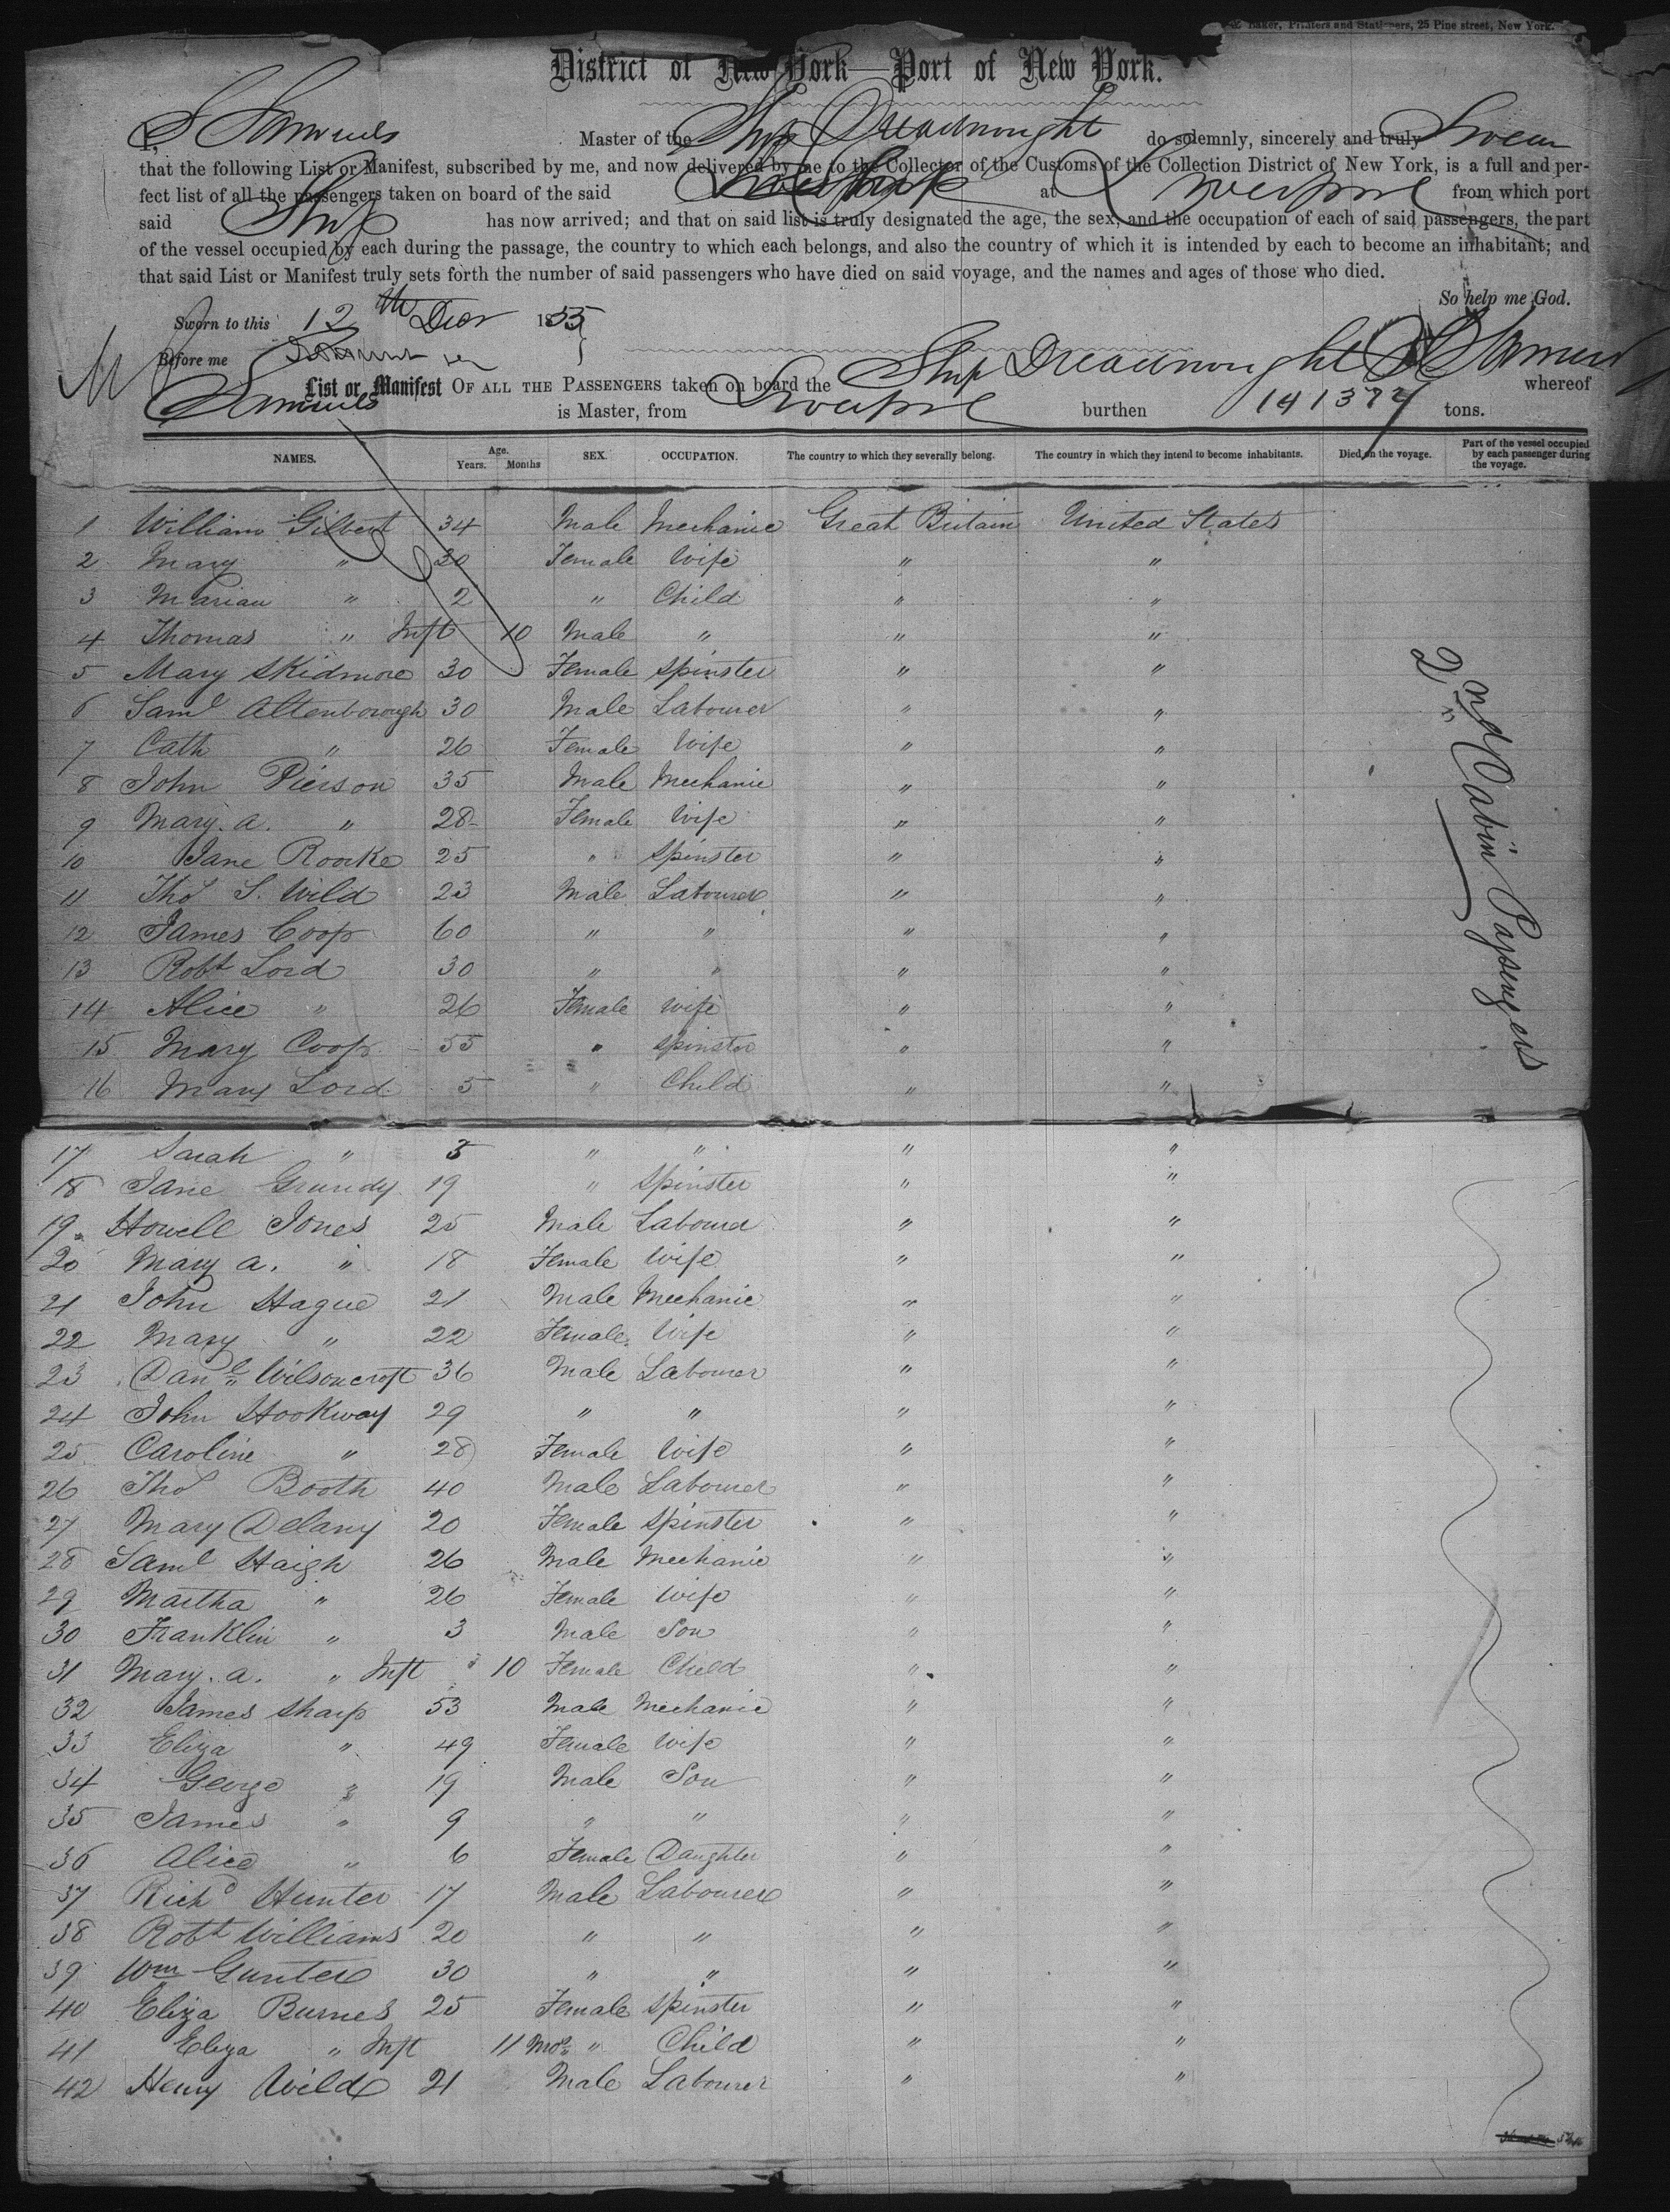 Baker, Printers and Stationers, 25 Pine street, New York.
District of New York—Port of New York.
I, S Samuels Master of the Ship Dreadnought do solemnly, sincerely and truly Swear
that the following List or Manifest, subscribed by me, and now delivered by me to the Collector of the Customs of the Collection District of New York, is a full and per-
fect list of all the passengers taken on board of the said Ship at Liverpool from which port
said Ship has now arrived; and that on said list is truly designated the age, the sex, and the occupation of each of said passengers, the part
of the vessel occupied by each during the passage, the country to which each belongs, and also the country of which it is intended by each to become an inhabitant; and
that said List or Manifest truly sets forth the number of said passengers who have died on said voyage, and the names and ages of those who died.
So help me God.
Sworn to this 12th Decr 1855
Before me
S Samuels
List or Manifest OF ALL THE PASSENGERS taken on board the Ship Dreadnought whereof
Samuels is Master, from Liverpool burthen 1413 tons.
NAMES. Age. Years. Months SEX. OCCUPATION. The country to which they severally belong. The country in which they intend to become inhabitants. Died on the voyage. Part of the vessel occupied by each passenger during the voyage.
1 William Gilbert 34 Male Mechanic Great Britain United States
2 Mary " 30 Female Wife " "
3 Marian " 2 " Child " "
4 Thomas " Inft 10 Male " " "
5 Mary Skidmore 30 Female Spinster " "
6 Saml Attenborough 30 Male Labourer " "
7 Cath " 26 Female Wife " "
8 John Pierson 35 Male Mechanic " "
9 Mary. a. " 28 Female Wife " "
10 Jane Roorke 25 " Spinster " "
11 Thos S. Wild 23 Male Labourer " "
12 James Coop 60 " " " "
13 Robt Lord 30 " " " "
14 Alice " 26 Female Wife " "
15 Mary Coop 55 " Spinster " "
16 Mary Lord 5 " Child " "
17 Sarah " 3 " " " "
18 Jane Grundy 19 " Spinster " "
19 Howell Jones 25 Male Labourer " "
20 Mary a. " 18 Female Wife " "
21 John Hague 21 Male Mechanic " "
22 Mary " 22 Female Wife " "
23 Danl Wilsoncroft 36 Male Labourer " "
24 John Hookway 29 " " " "
25 Caroline " 28 Female Wife " "
26 Thos Booth 40 Male Labourer " "
27 Mary Delany 20 Female Spinster " "
28 Saml Haigh 26 Male Mechanic " "
29 Martha " 26 Female Wife " "
30 Franklin " 3 Male Son " "
31 Mary. a. " Inft 10 Female Child " "
32 James Sharp 53 Male Mechanic " "
33 Eliza " 49 Female Wife " "
34 George " 19 Male Son " "
35 James " 9 " " " "
36 Alice " 6 Female Daughter " "
37 Richd Hunter 17 Male Labourer " "
38 Robt Williams 20 " " " "
39 Wm Gunter 30 " " " "
40 Eliza Burnes 25 Female Spinster " "
41 Eliza " Inft 11 Mos " Child " "
42 Henry Wild 21 Male Labourer " "
2nd Cabin Passengers